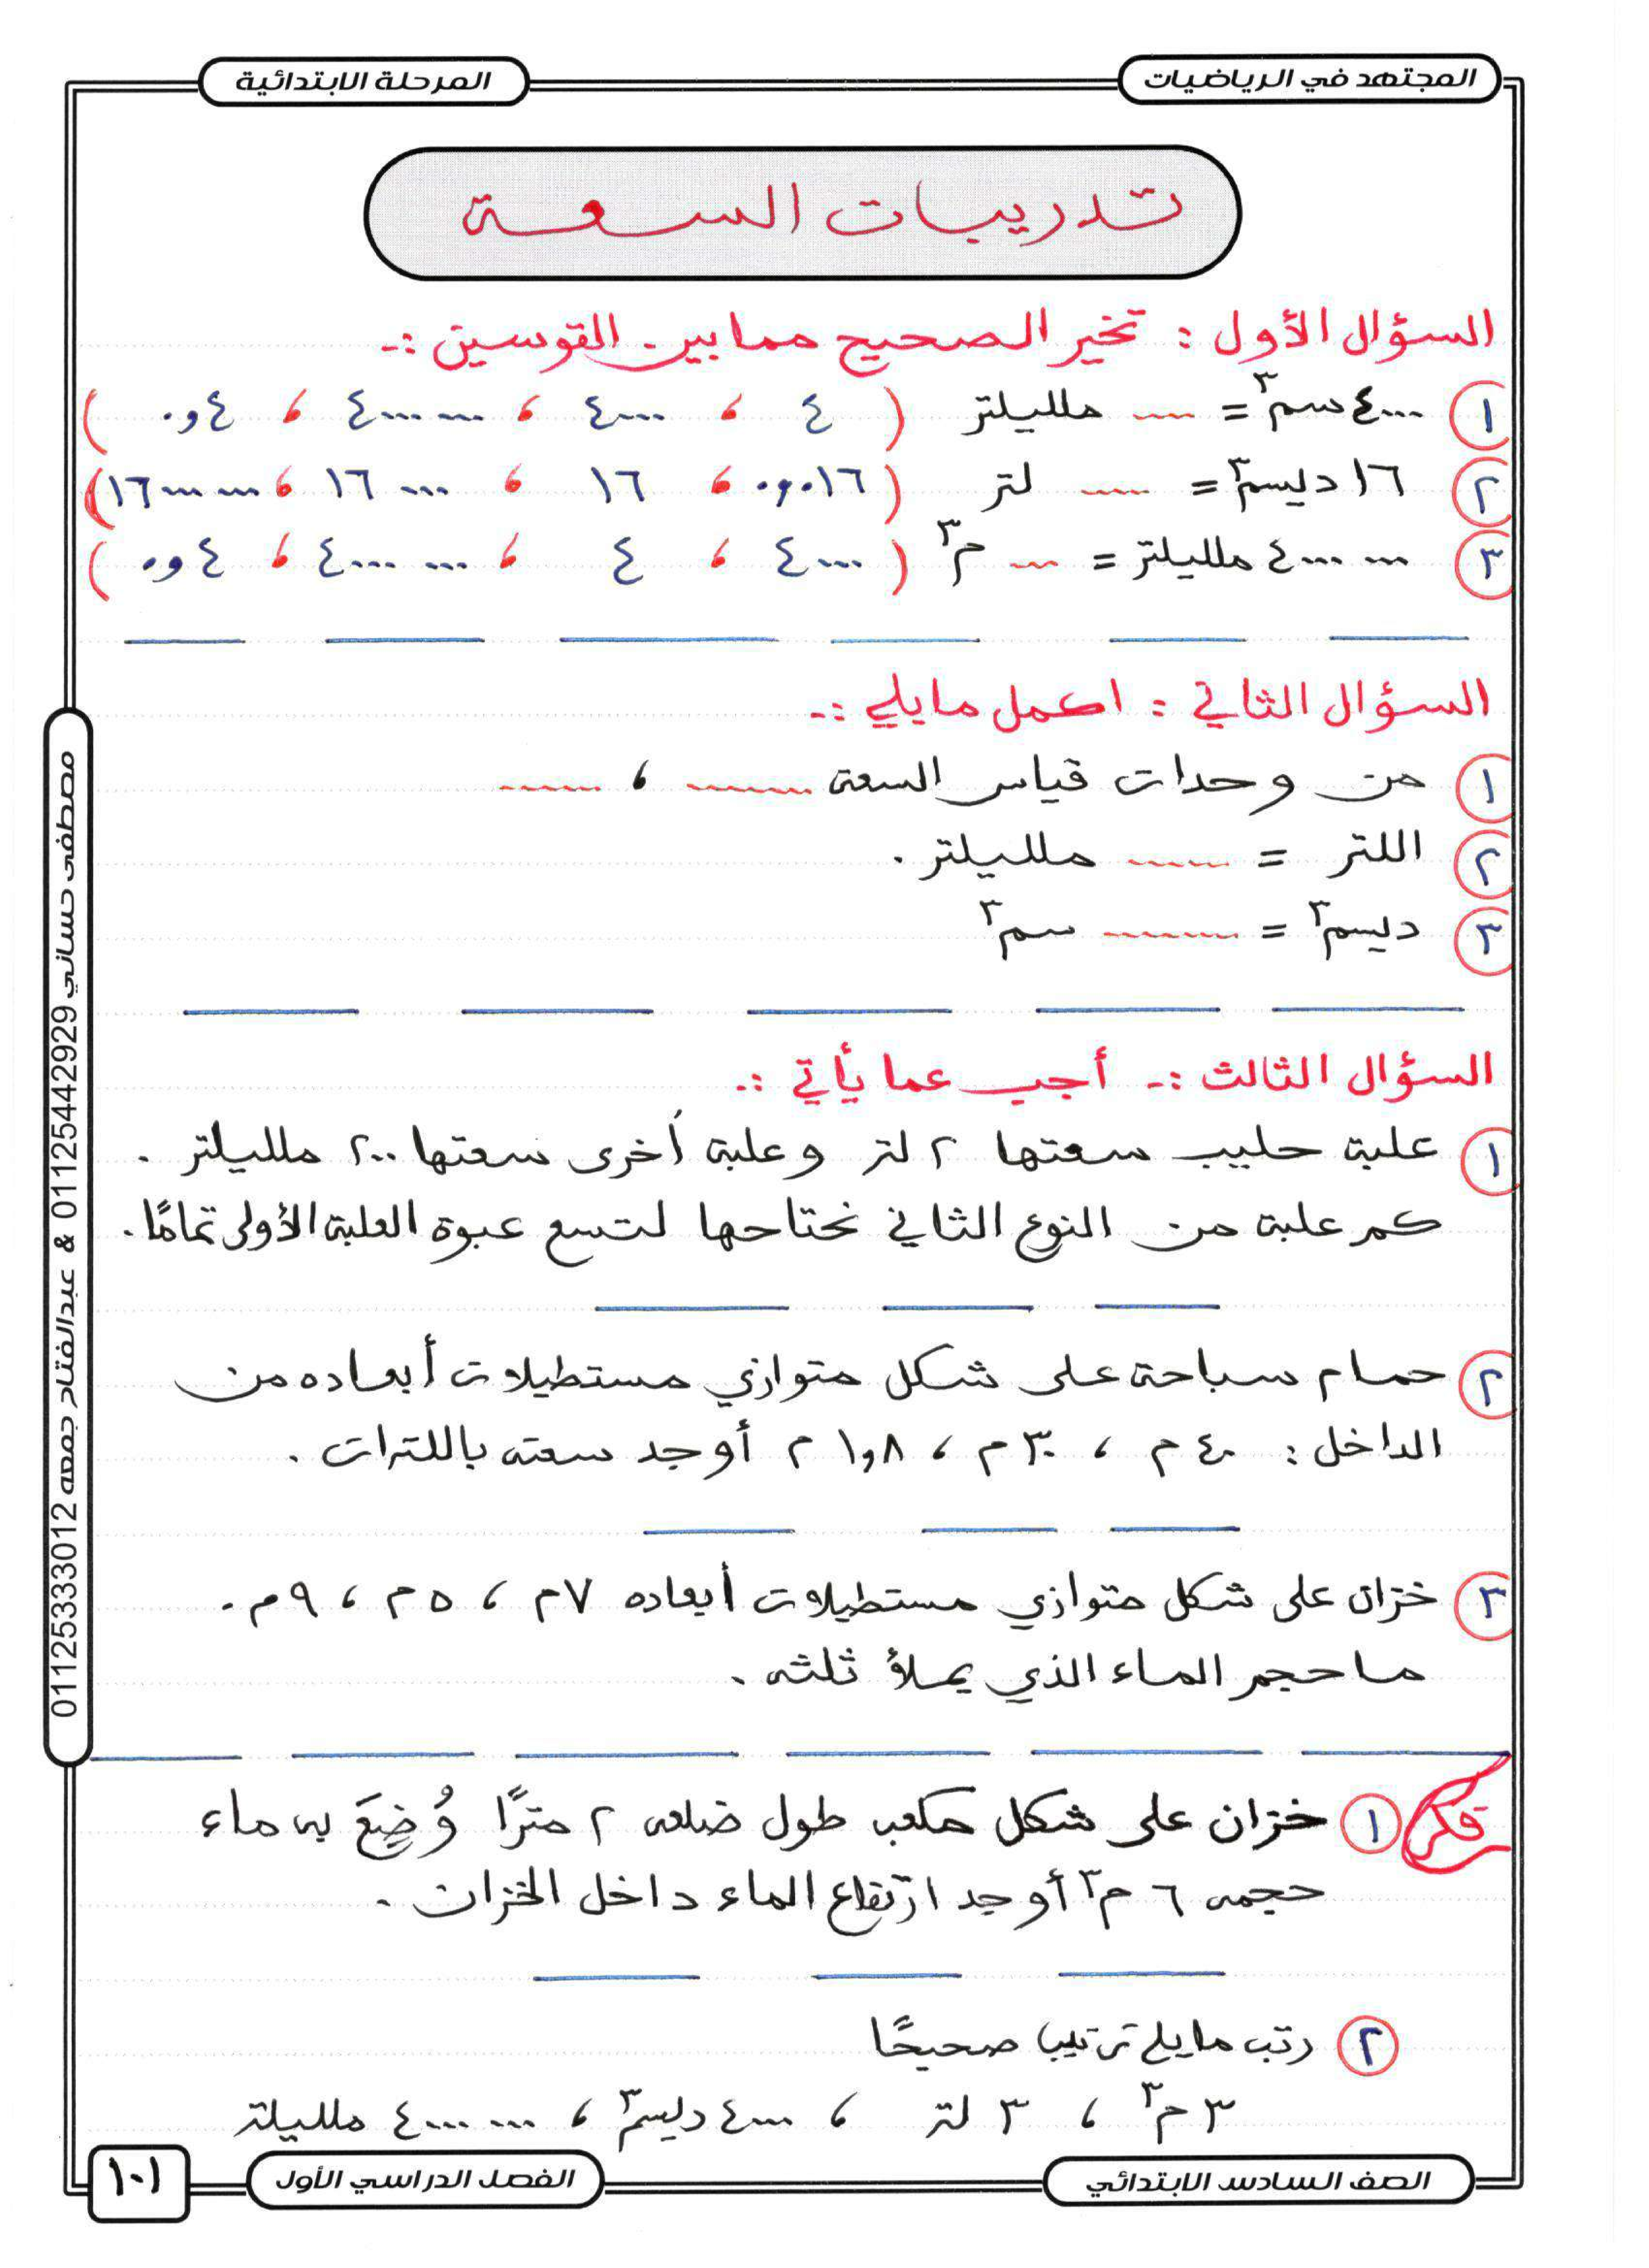 المجتهد في الرياضيات
المرحلة الابتدائية
تدريبات السعة
السؤال الأول : تخير الصحيح مما بين القوسين :-
١ ٤٠٠٠ سم٣ = .... ملليلتر ( ٤ ، ٤٠٠٠ ، ٤٠٠٠٠٠٠ ، ٤و٠ )
٢ ١٦ ديسم٣ = .... لتر ( ٠١٦و٠ ، ١٦ ، ١٦٠٠٠ ، ١٦٠٠٠٠٠٠ )
٣ ٤٠٠٠٠٠٠ ملليلتر = .... م٣ ( ٤٠٠٠ ، ٤ ، ٤٠٠٠٠٠٠ ، ٤و٠ )
السؤال الثاني : اكمل ما يلي :-
١ من وحدات قياس السعة ........ ، ........
٢ اللتر = ........ ملليلتر .
٣ ديسم٣ = ........ سم٣
السؤال الثالث :- أجب عما يأتي :-
١ علبة حليب سعتها ٢ لتر وعلبة أخرى سعتها ٢٠٠ ملليلتر .
كم علبة من النوع الثاني نحتاحها لتسع عبوة العلبة الأولى تمامًا .
٢ حمام سباحة على شكل متوازي مستطيلات أبعاده من
الداخل : ٤٠ م ، ٣٠ م ، ١,٨ م أوجد سعته باللترات .
٣ خزان على شكل متوازي مستطيلات أبعاده ٧ م ، ٥ م ، ٩ م .
ما حجم الماء الذي يملأ ثلثه .
فكر
١ خزان على شكل مكعب طول ضلعه ٢ مترًا وُضِعَ به ماء
حجمه ٦ م٣ أوجد ارتفاع الماء داخل الخزان .
٢ رتب ما يلي ترتيبا صحيحًا
٣ م٣ ، ٣ لتر ، ٤٠٠٠ ديسم٣ ، ٤٠٠٠٠٠٠ ملليلتر
الصف السادس الابتدائي
الفصل الدراسي الأول
١٠١
مصطفى حساني 01125442929 & عبدالفتاح جمعه 01125333012